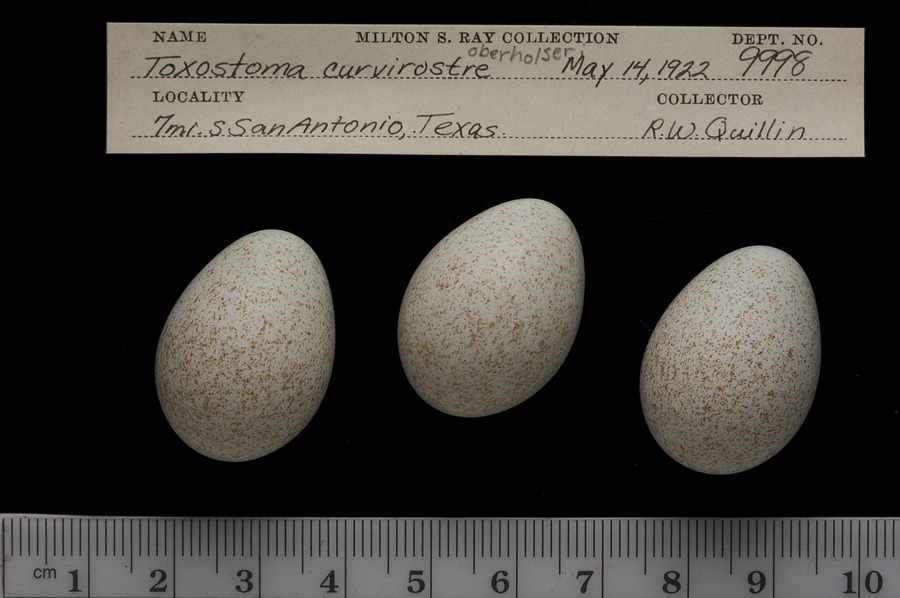 NAME MILTON S. RAY COLLECTION DEPT. NO.
oberholseri
Toxostoma curvirostre May 14, 1922 9998
LOCALITY COLLECTOR
7mi. S. San Antonio, Texas. R.W. Quillin
cm 1 2 3 4 5 6 7 8 9 10